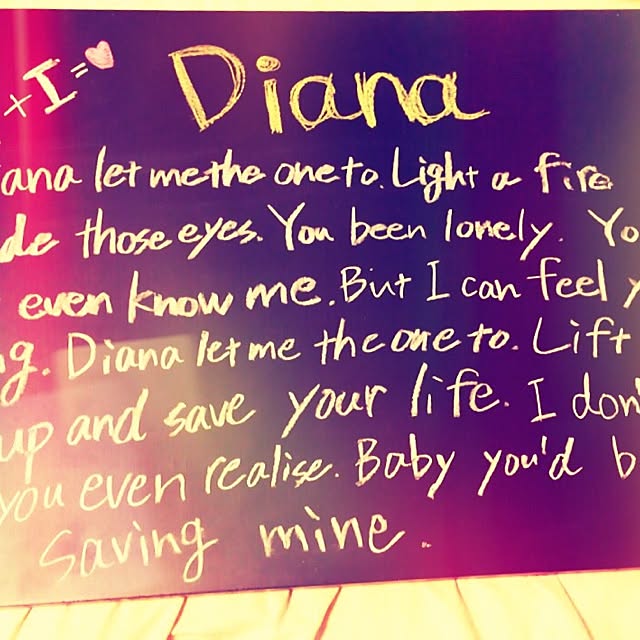 + I = ♥
Diana
iana let me the one to. Light a fire
de those eyes. You been lonely. Yo
even know me. But I can feel y
ng. Diana let me the one to. Lift
up and save your life. I don'
you even realise. Baby you'd b
Saving mine.